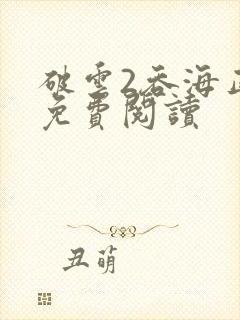 破雲2吞海正
免費閱讀
丑萌